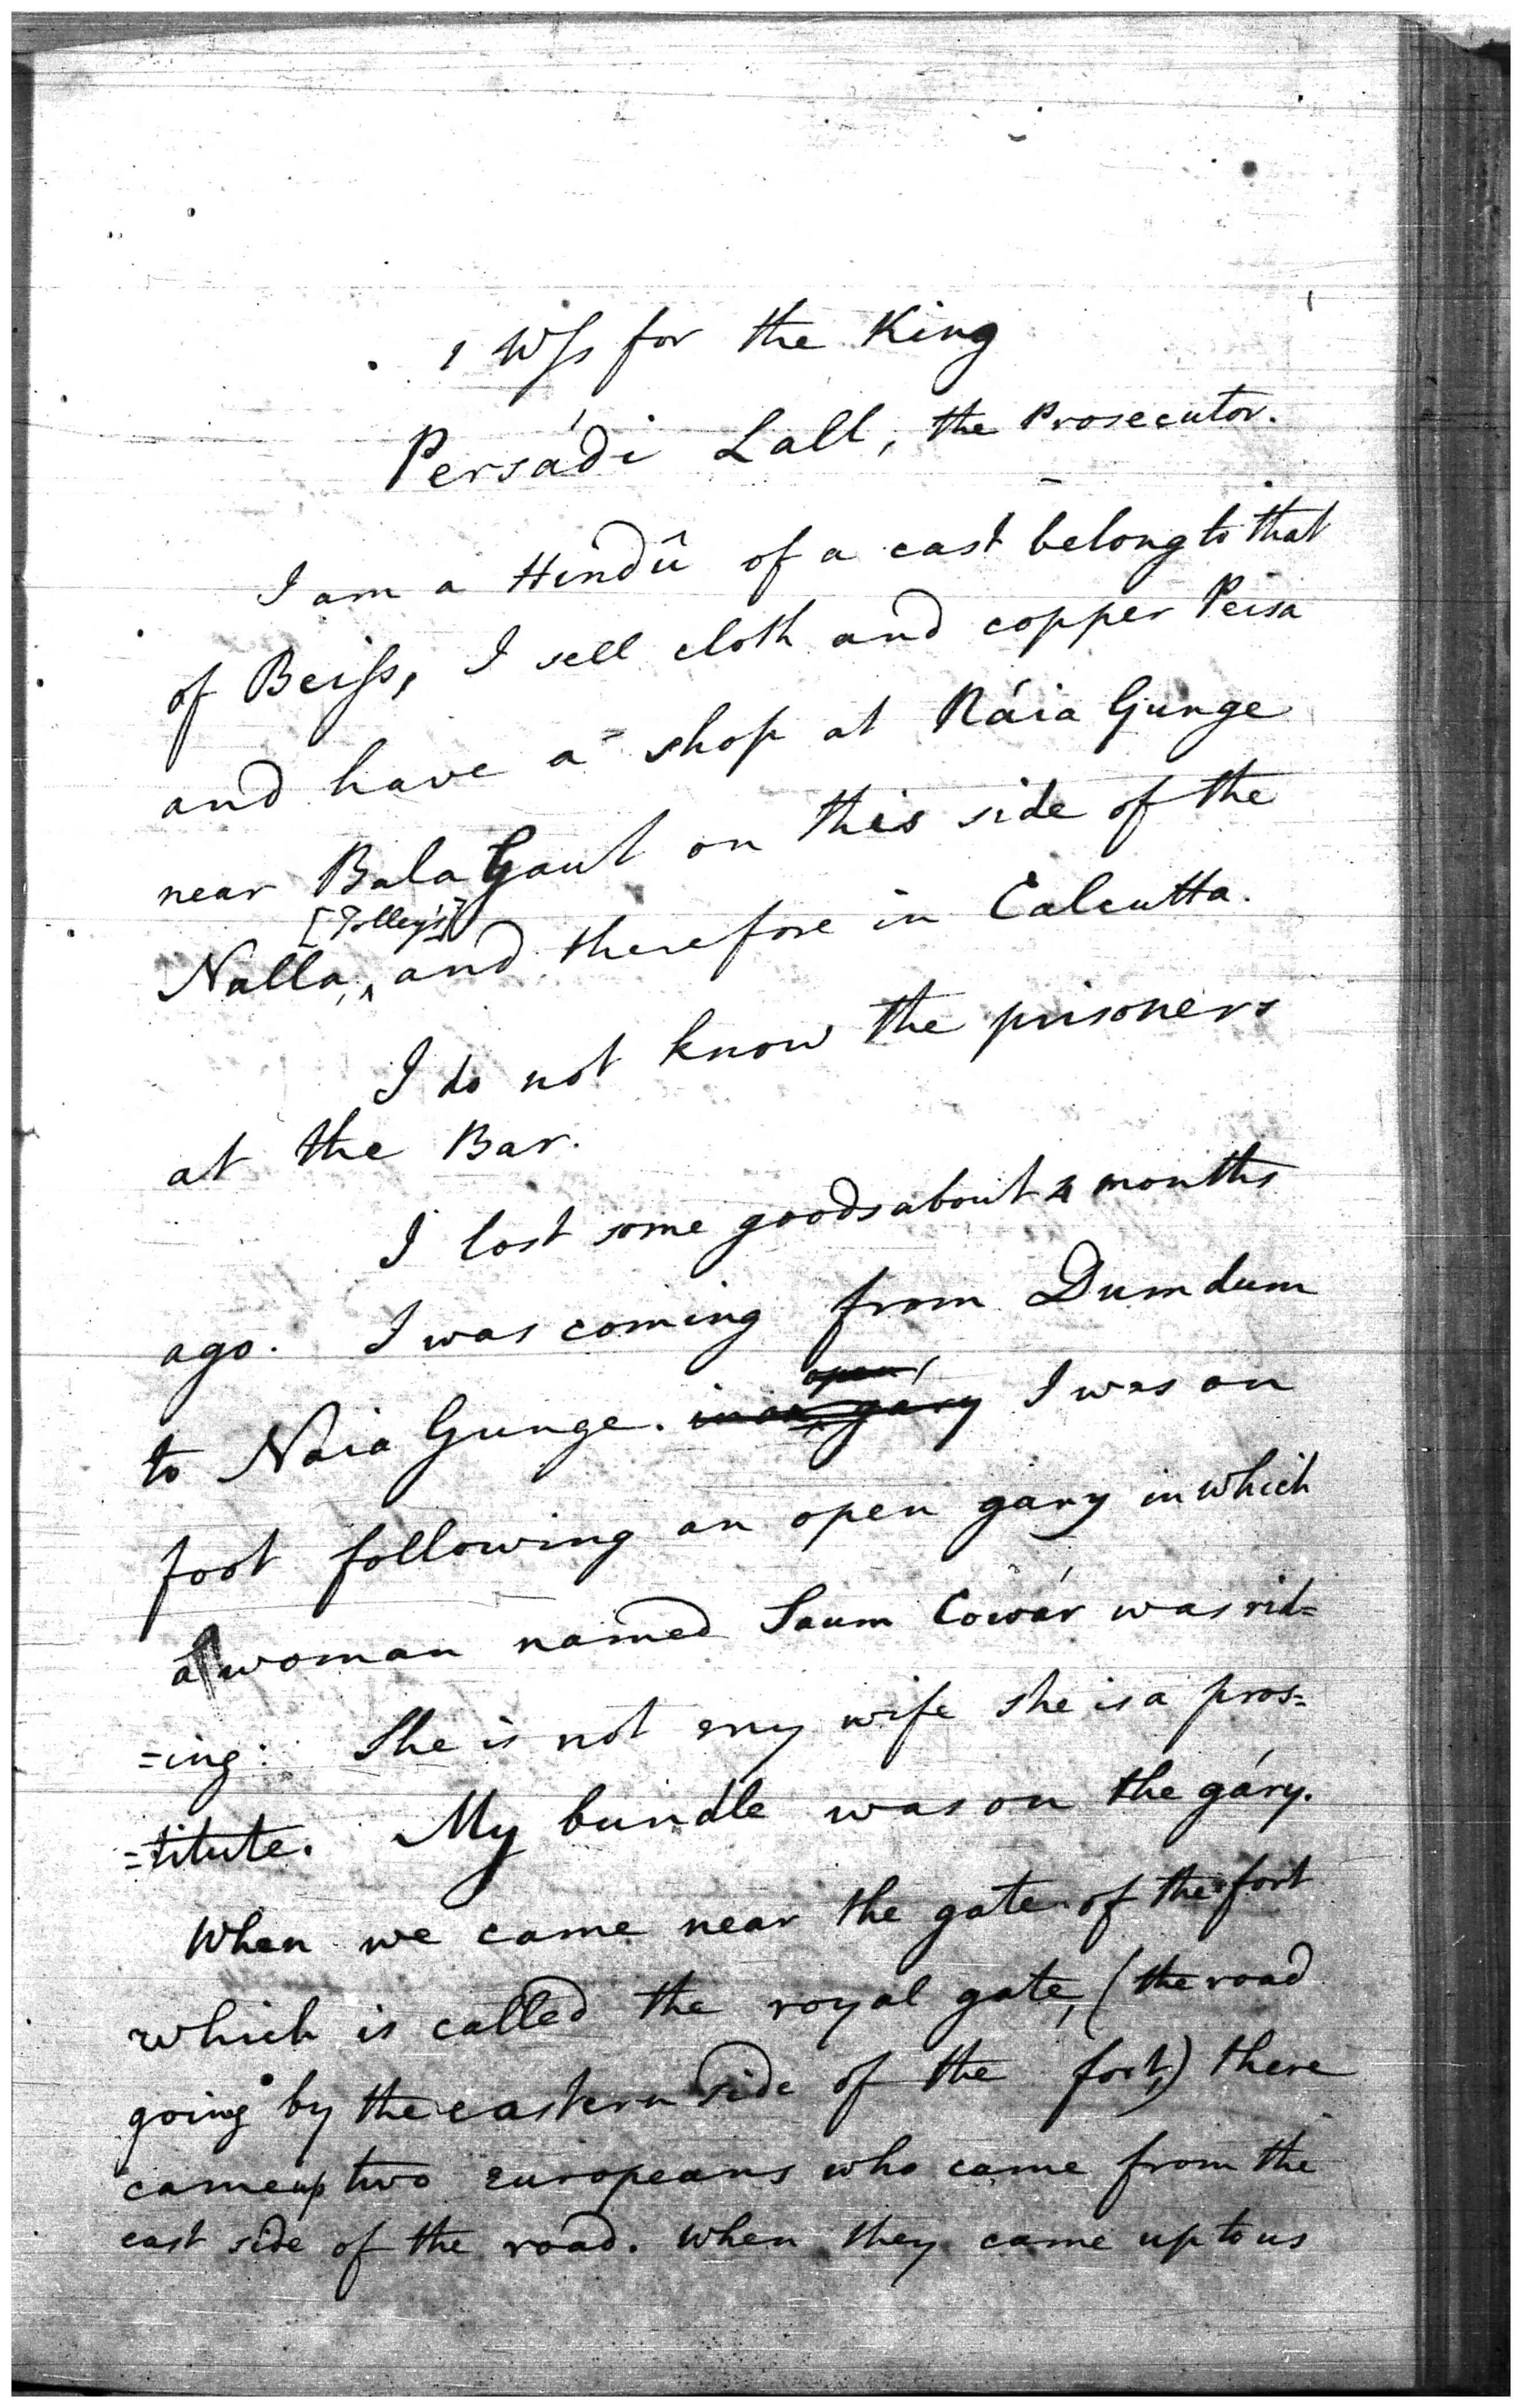 1 Wſs for the King
Persádi Lall, the Prosecutor.
I am a Hindû of a cast belong to that
of Beiſs, I sell cloth and copper Peisa
and have a shop at Náia Gunge
near Bala Gaut on this side of the
[Tolley's]
Nalla, ^ and therefore in Calcutta.
I do not know the prisoners
at the Bar.
I lost some goods about 4 months
ago. I was coming from Dumdum
open
to Naia Gunge. in an ^ gáry I was on
foot following an open gary in which
a woman named Saum Cowár was rid=
=ing: She is not my wife she is a pros=
=titute. My bundle was on the gáry.
When we came near the gate of the fort
which is called the royal gate, (the road
going by the eastern side of the fort,) there
came up two europeans who came from the
east side of the road. When they came up to us